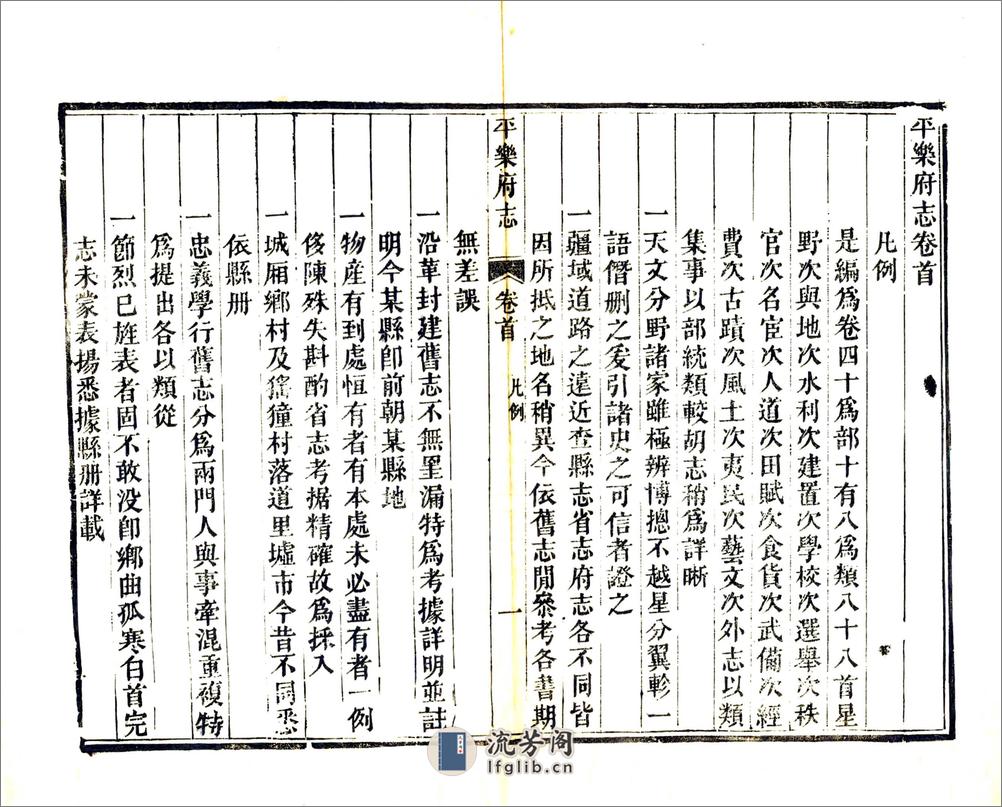 平樂府志卷首
凡例
是編爲卷四十爲部十有八爲類八十八首星
野次輿地次水利次建置次學校次選舉次秩
官次名宦次人道次田賦次食貨次武備次經
費次古蹟次風土次夷民次藝文次外志以類
集事以部統類較胡志稍爲詳晰
一天文分野諸家雖極辨博摠不越星分翼軫一
語僭删之爰引諸史之可信者證之
一疆域道路之遠近查縣志省志府志各不同皆
因所抵之地名稍異今依舊志閒叅考各書期
平樂府志
卷首
凡例
一
無差誤
一沿革封建舊志不無罣漏特爲考據詳明並註
明今某縣卽前朝某縣地
一物産有到處恒有者有本處未必盡有者一例
侈陳殊失斟酌省志考据精確故爲採入
一城厢鄉村及猺獞村落道里墟市今昔不同悉
依縣册
一忠義學行舊志分爲兩門人與事牽混重複特
爲提出各以類從
一節烈已旌表者固不敢没卽鄉曲孤寒白首完
志未蒙表揚悉據縣册詳載
流芳阁
lfglib.cn